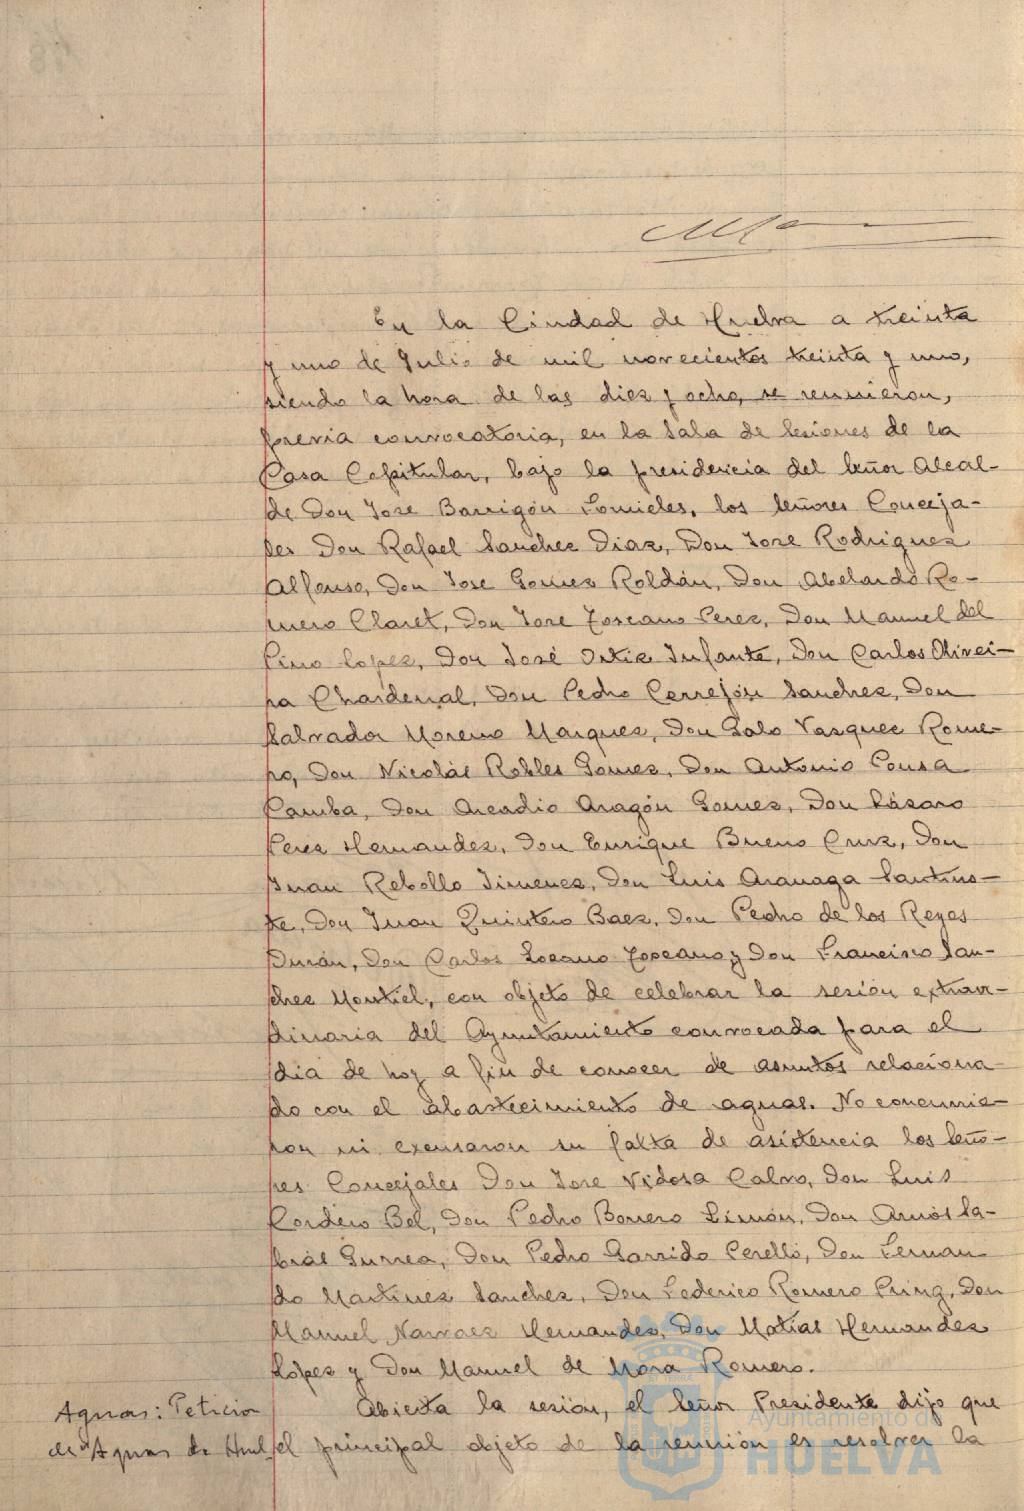 En la Ciudad de Huelva a treinta
y uno de Julio de mil novecientos treinta y uno,
siendo la hora de las diez y ocho, se reunieron,
previa convocatoria, en la Sala de Sesiones de la
Casa Capitular, bajo la presidencia del Señor Alcal-
de Don Jose Barrigón Fornieles, los Señores Conceja-
les Don Rafael Sanchez Diaz, Don Jose Rodriguez
Alfonso, Don Jose Gomez Roldán, Don Abelardo Ro-
mero Claret, Don Jose Toscano Perez, Don Manuel del
Pino Lopez, Don José Ortiz Infante, Don Carlos Olivei-
ra Chardenal, Don Pedro Cerrejón Sanchez, Don
Salvador Moreno Marquez, Don Galo Vazquez Rome-
ro, Don Nicolás Robles Gomez, Don Antonio Pousa
Camba, Don Arcadio Aragón Gomez, Don Lázaro
Perez Hernandez, Don Enrique Bueno Cruz, Don
Juan Rebollo Jimenez, Don Luis Aranaga Santiuo-
te, Don Juan Quintero Baez, Don Pedro de los Reyes
Durán, Don Carlos Lozano Toscano y Don Francisco San-
chez Montiel, con objeto de celebrar la sesión extraor-
dinaria del Ayuntamiento convocada para el
dia de hoy a fin de conocer de asuntos relaciona-
do con el abastecimiento de aguas. No concurrie-
ron ni excusaron su falta de asistencia los Seño-
res Concejales Don Jose Vidosa Calvo, Don Luis
Cordero Bel, Don Pedro Borrero Limón, Don Amós Sa-
brás Gurrea, Don Pedro Garrido Perelló, Don Fernan
do Martinez Sanchez, Don Federico Romero Pring, Don
Manuel Narvaez Hernandez, Don Matias Hernandez
López y Don Manuel de Mora Romero.
Aguas: Peticion
de "Aguas de Huel
Abierta la sesión, el Señor Presidente dijo que
el principal objeto de la reunión es resolver la
Ayuntamiento de
HUELVA